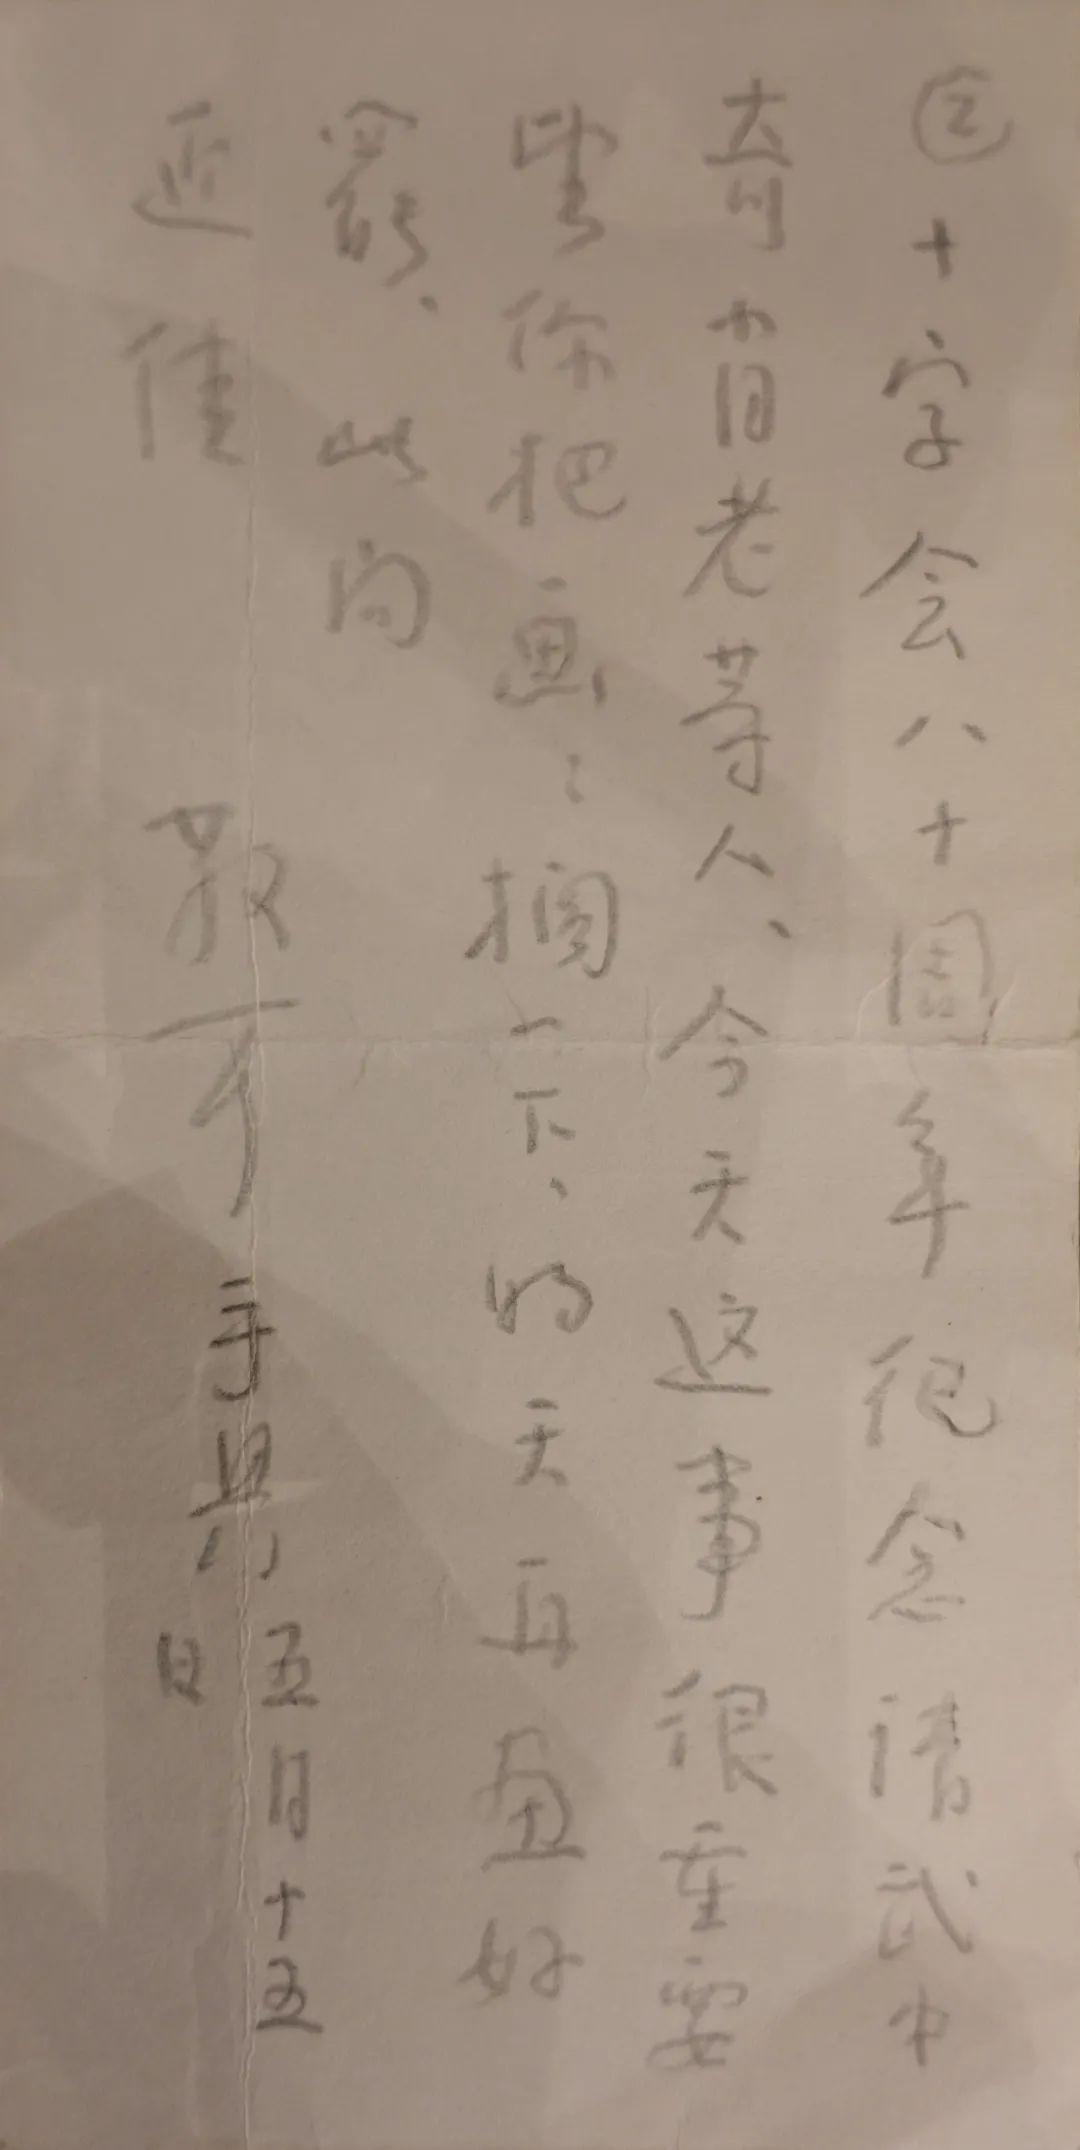 ②十字会八十周年纪念请武中
奇肖老等人、今天这事很重要
望你把画：搁一下、明天再画好
罢、此问
近佳
敬不手具
五月十五
日